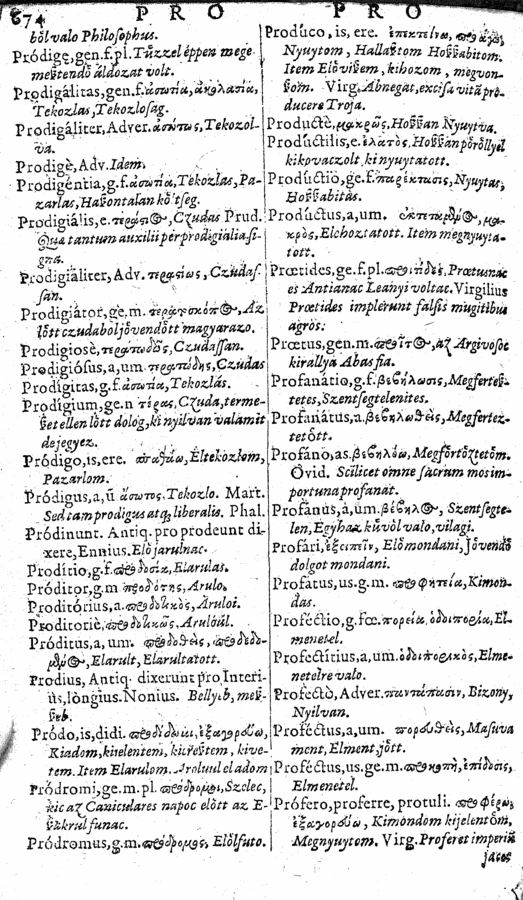 674 P R O P R O
bôl valo Philosophus.
Pródige, gen. f. pl. Tûzzel éppen mege
mesztendô áldozat volt.
Prodigálitas, gen. f. ἀσωτία, ἀκολασία,
Tekozlas, Tekozlosag.
Prodigáliter, Adver. ἀσώτως, Tekozol-
va.
Prodigè, Adv. Idem.
Prodigéntia, g. f. ἀσωτία, Tekozlas, Pa-
zarlas, Haszontalan kôltseg.
Prodigiális, e. Czudas Prud.
Qua tantum auxilii per prodigialia si-
gna.
Prodigiáliter, Adv. Czudas-
san.
Prodigiátor, ge, m. Az
lôtt czudaból jôvendôtt magyarazo.
Prodigiosè, Czudassan.
Prodigiósus, a, um. Czudas
Prodígitas, g. f. ἀσωτία, Tekozlás.
Prodígium, ge. n τέρας, Czuda, terme-
szet ellen lôtt dolog, ki nyilvan valamit
dejegyez.
Pródigo, is, ere. Eltekozlom,
Pazarlom.
Pródigus, a, ũ ἄσωτος, Tekozlo. Mart.
Sed tam prodigus atq; liberalis. Phal.
Pródinunt. Antiq. pro prodeunt di-
xere, Ennius. Elô jarulnac.
Prodítio, g. f. προδοσία, Elarulas.
Próditor, g. m προδότης, Arulo.
Proditórius, a. προδοτικὸς, Aruloi.
Proditoriè, προδοτικῶς, Arulóúl.
Próditus, a, um. προδοθεὶς, προδεδο-
μένος, Elarult, Elarultatott.
Prodius, Antiq. dixerunt pro Interi-
ùs, lóngius. Nonius. Bellyeb, mesz-
szeb.
Pródo, is, didi. προδίδωμι, ἐξαγορεύω,
Kiadom, kijelentem, kiteritem, kive-
tem. Item Elarulom. Aroluul el adom
Pródromi, ge. m. pl. πρόδρομοι, Szelec,
kic az Caniculares napoc elôtt az E-
szakrul funac.
Pródromus, g. m. πρόδρομος, Elôlfuto.
Prodúco, is, ere. ἐπεκτείνω, προάγω,
Nyuytom, Hallasztom Hoszszabitom.
Item Elô viszem, ki hozom, megvon-
szom. Virg. Abnegat, excisa vitã pro-
ducere Troja.
Productè, μακρῶς, Hoszszan Nyuytva.
Prodúctilis, e. ἐλατὸς, Hoszszan pôrôllyel
ki kovaczolt, ki nyuytatott.
Prodúctio, ge, f. παρέκτασις, Nyuytas,
Hoszszabitàs.
Prodúctus, a, um. μα-
κρὸς, Elchoztatott. Item megnyuyta-
tott.
Prœtides, ge, f. pl. Prœtusnac
es Antianac Leanyi voltac. Virgilius
Prœtides implerunt falsis mugitibus
agros:
Prœtus, gen. m. az Argivosoc
kirallya Abas fia.
Profanátio, g. f. βεβήλωσις, Megfertesz-
tetes, Szentsegtelenites.
Profanátus, a. βεβηλωθεὶς, Megfertez-
tetôtt.
Profáno, as. βεβηλόω, Megfôrtôztetôm.
Ovid. Scilicet omne sacrum mos im-
portuna profanat.
Profánus, a, um. βέβηλος, Szentsegte-
len, Egyhaz kûvôl valo, vilagi.
Profári, ἐξειπεῖν, Elô mondani, Jôvendô
dolgot mondani.
Profátus, us. g. m. προφητεία, Kimon-
das.
Proféctio, g. fœ. πορεία, ὁδοιπορία, El-
menetel.
Profectítius, a, um. ὁδοιπορικὸς, Elme-
netelre valo.
Proféctò, Adver. παντάπασιν, Bizony,
Nyilvan.
Proféctus, a, um. πορευθεὶς, Masuva
ment, Elment, jôtt.
Proféctus, us. ge. m. προκοπὴ, ἐπίδοσις,
Elmenetel.
Prófero, proferre, protuli. προφέρω,
ἐξαγορεύω, Kimondom kijelentôm,
Megnyuytom. Virg. Proferet imperiũ
jaces